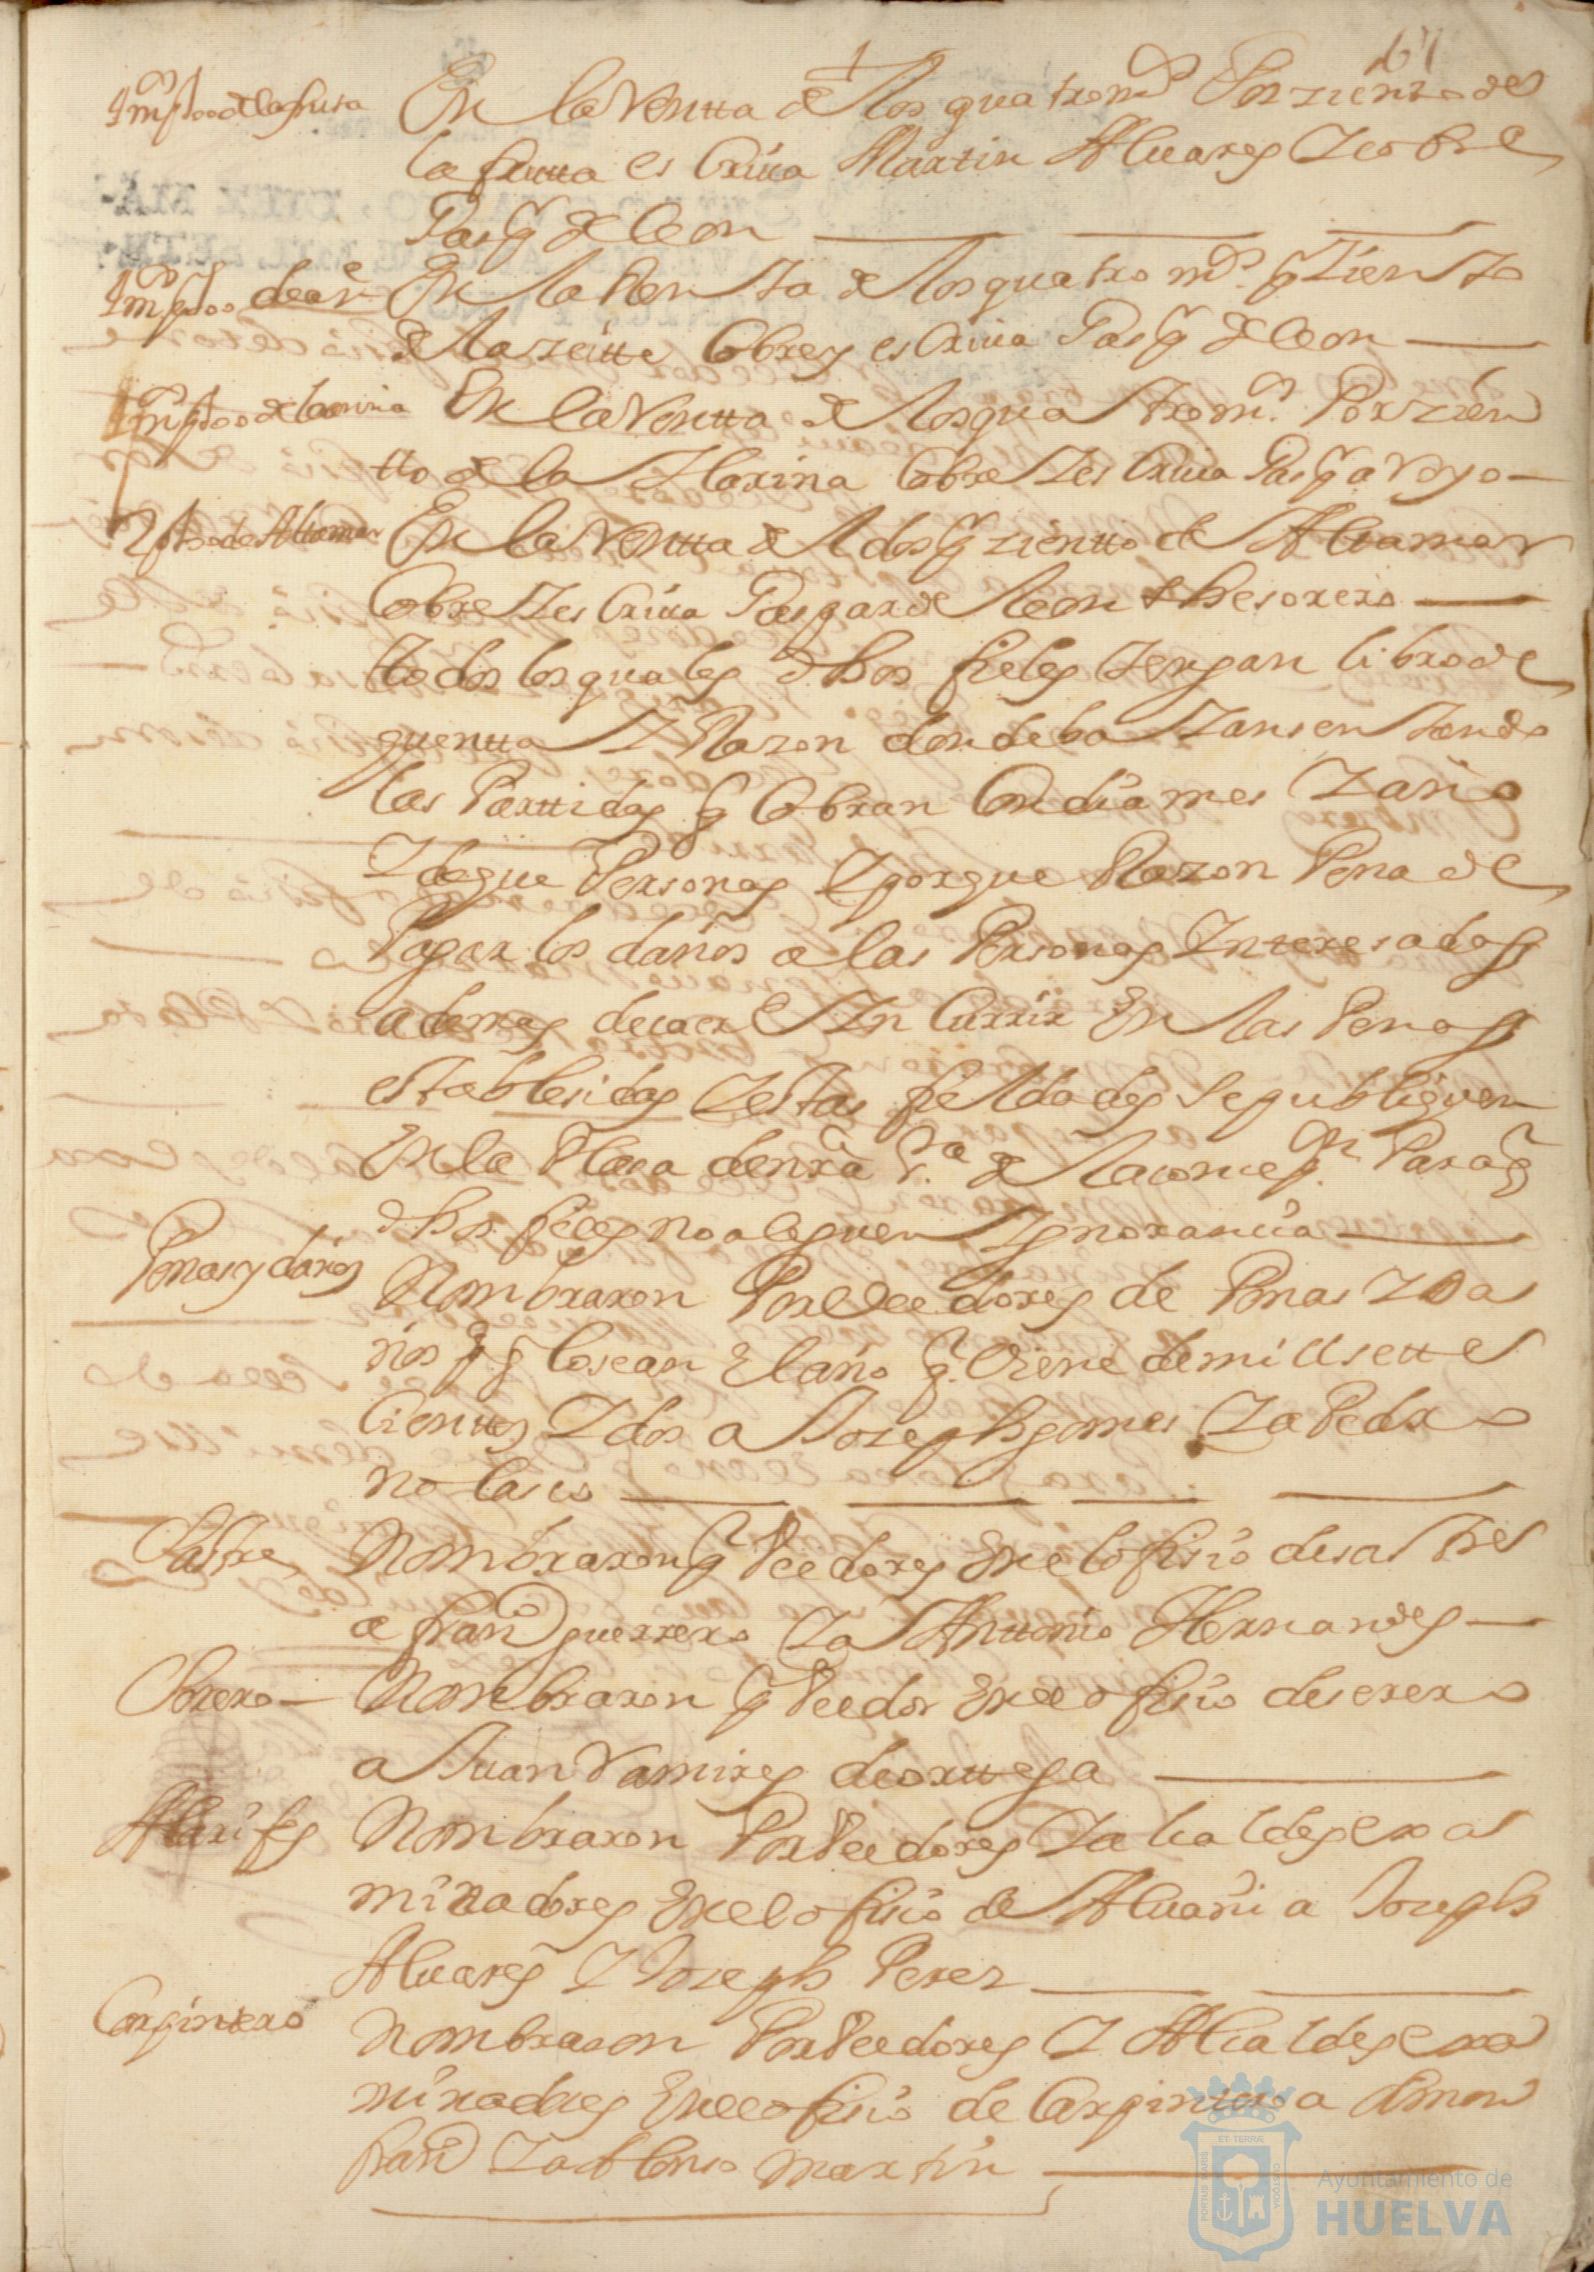 67
Impto de la fruta
En la Ventta de los quatro ms Por ziento de
la frutta es Criva Martin Aluares Y cobre
Pasqr de leon
Impto de ase
En la Venta de los quatro ms. pr Ziento
del azeitte Cobre y es Criva Pasql de leon
Impto de la arina
En la Ventta de los quatro ms. Por zien
tto de la Harina Cobre Y es Criva Pasql
2 pto de Altamar
En la Ventta del dos pr zientto de Altamar
Cobre Y es Criva Pasqar de leon thesorero
Ttodos los quales dhos fieles tengan libro de
quentta Y Razon donde ba Yan sen tando
las Parttidas q Cobran Con dia mes Y año
Y de que Personas Y por que Razon Pena de
Pagar los daños a las Personas Interesadas
ademas de caer e In Currir En las Penas
establesidas Y estas fieldades se publiquen
En la Plasa de nra Va de
dhos fieles no aleguen Ygnorancia
Penas y daños
Nombraron Por Veedores de Penas Y Da
ños pa q lo sean El año q. Viene de mill sette
Cienttos Y dos a Joseph gomes Y a Pedro
nolasco
Sastre
Nombraron pr Veedores En el ofisio de sastre
a franco guerrero Y a Anttonio Hernandes
Serero
Nombraron pr Veedor En el ofisio de serero
a Juan Ramires de orttega
Alarifes
Nombraron Por Veedores Y alcaldes exsa
minadores En el ofisio de Aluañi a Joseph
Aluares Y Joseph Peres
Carpintero
Nombraron Por Veedores Y Alcaldes exa
minadores En el ofisio de Carpintero a Simon
franco Y a Alonso Martin
ET TERRÆ
PORTUS MARIS
CUSTODIA
Ayuntamiento de
HUELVA